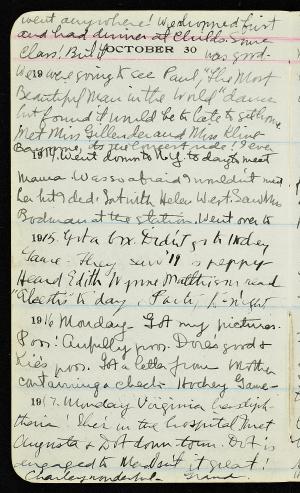 went anywhere! We dropped first
and had dinner at Childs. Some
class! But it was good.
OCTOBER 30
19 were going to see Paul, "The Most
Beautiful Man in the World" dance
but found it would be too late to get home
Met Miss Gillender and Miss Cline
ever
1914. Went down to N.Y. to day to meet
Mama. Was so afraid I wouldn't meet
her but I did. Sat with Helen West. Saw Mrs
Bodman at the station. Went over to
1915. Got a box. Didn't go to Hockey
Game. They say '19 is peppy
Heard Edith Wynne Matthison read
"Electra" to day.
1916 Monday - Got my pictures.
Poor! Awfully poor. Dore's good &
Kie's poor. Got a letter from Mother
containing a check. Hockey Game -
1917. Monday Virginia has diph-
theria! She's in the hospital. Met
Augusta & Dot down town. Dot is
engaged to Isn't it great!
Charley wonderful - Grand.